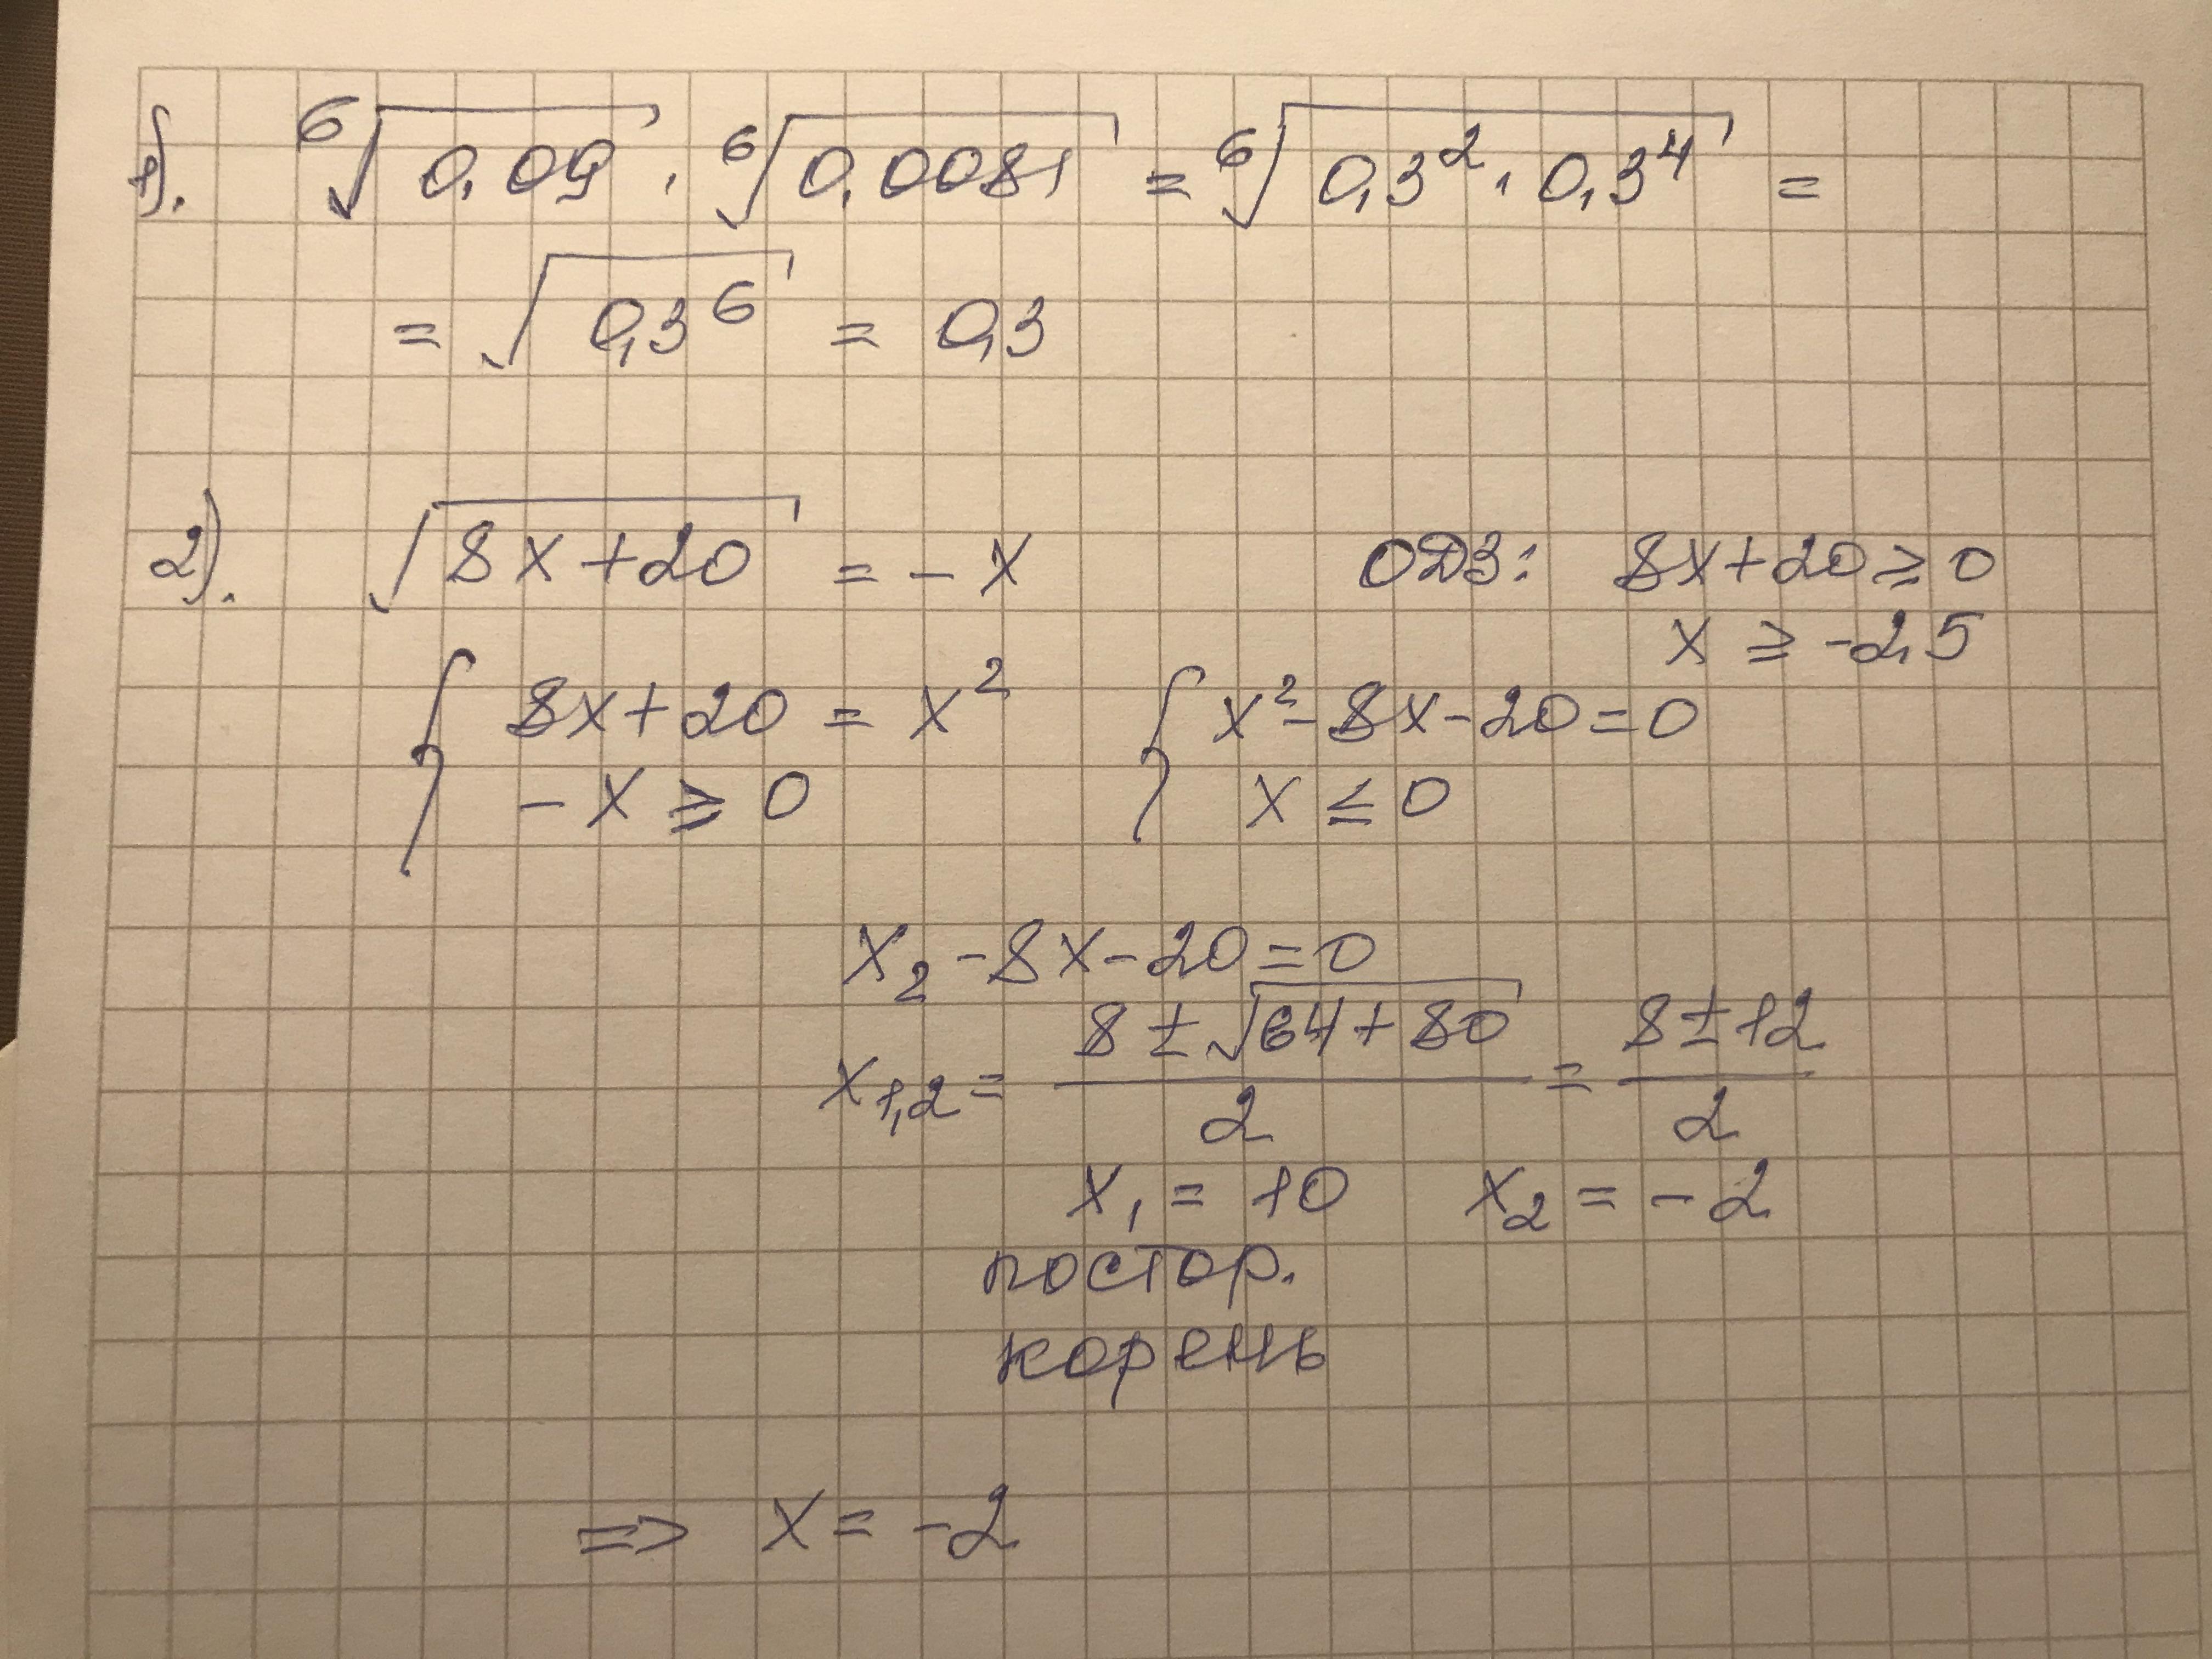 1). ⁶√0,09 · ⁶√0,0081 = ⁶√0,3² · 0,3⁴ =
= √0,3⁶ = 0,3
2). √8x+20 = -x ОДЗ: 8x+20 ≥ 0
x ≥ -2,5
{ 8x+20 = x² { x² - 8x - 20 = 0
-x ≥ 0 x ≤ 0
x₂ - 8x - 20 = 0
x₁,₂ = (8 ± √64+80)/2 = (8 ± 12)/2
x₁ = 10 x₂ = -2
постор.
корень
=> x = -2